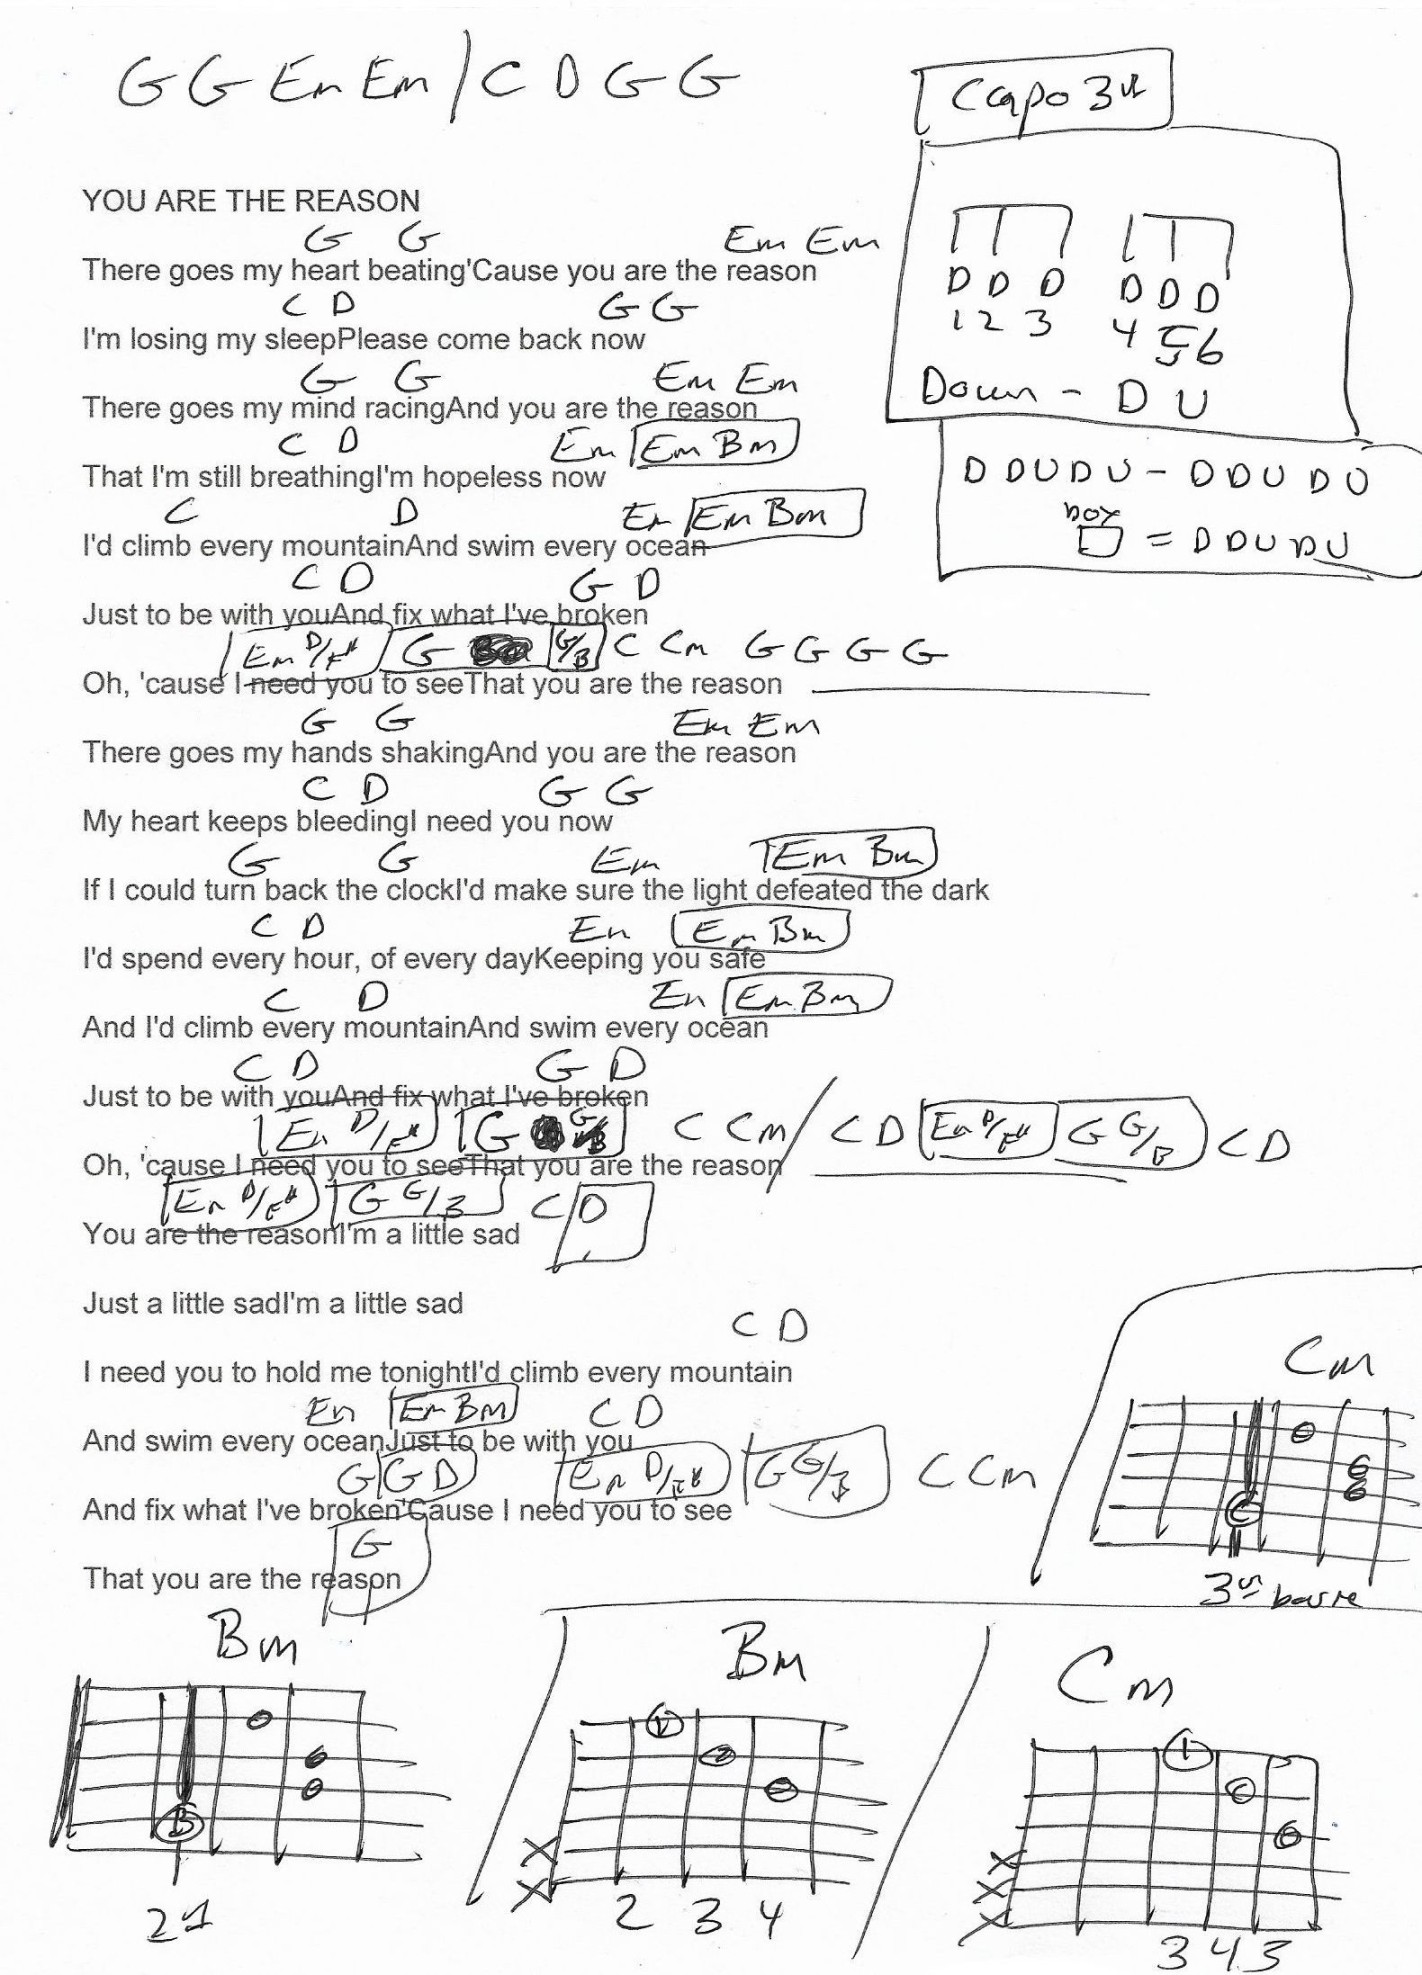 G G Em Em / C D G G
Capo 3
YOU ARE THE REASON
G G Em Em
There goes my heart beating'Cause you are the reason
C D G G
I'm losing my sleepPlease come back now
G G Em Em
There goes my mind racingAnd you are the reason
C D Em Em Bm
That I'm still breathingI'm hopeless now
C D Em Em Bm
I'd climb every mountainAnd swim every ocean
C D G D
Just to be with youAnd fix what I've broken
Em D/F# G G/B C Cm G G G G
Oh, 'cause I need you to seeThat you are the reason
G G Em Em
There goes my hands shakingAnd you are the reason
C D G G
My heart keeps bleedingI need you now
G G Em Em Bm
If I could turn back the clockI'd make sure the light defeated the dark
C D Em Em Bm
I'd spend every hour, of every dayKeeping you safe
C D Em Em Bm
And I'd climb every mountainAnd swim every ocean
C D G D
Just to be with youAnd fix what I've broken
Em D/F# G G/B C Cm / C D Em D/F# G G/B C D
Oh, 'cause I need you to seeThat you are the reason
Em D/F# G G/B C D
You are the reasonI'm a little sad
Just a little sadI'm a little sad
C D
I need you to hold me tonightI'd climb every mountain
Em Em Bm C D
And swim every oceanJust to be with you
G G D Em D/F# G G/B C Cm
And fix what I've broken'Cause I need you to see
G
That you are the reason
D D D D D D
1 2 3 4 5 6
Down - D U
D D U D U - D D U D U
box
= D D U D U
Cm
C
3 barre
Bm
B
2
Bm
1
2
X
X
2 3 4
Cm
1
X
X
X
3 4 3